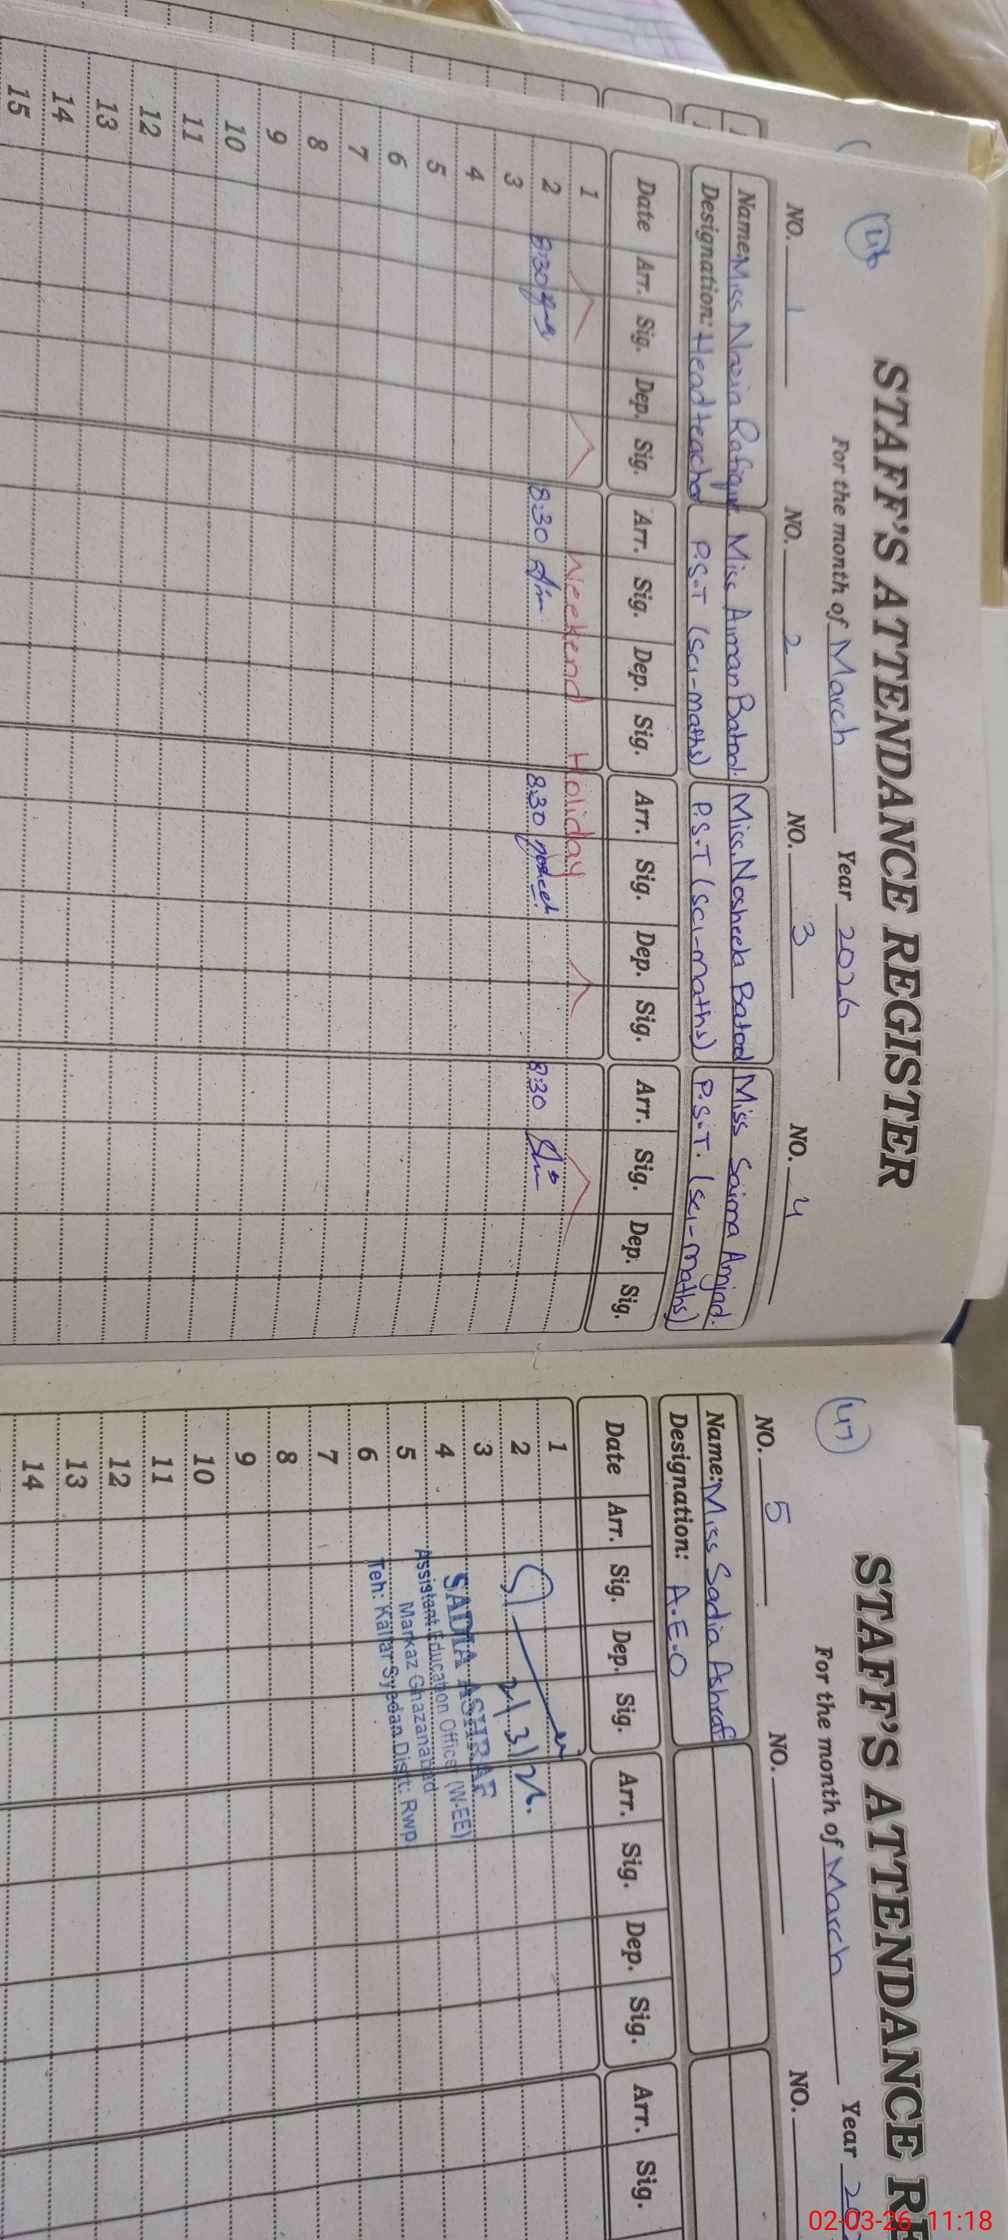 46
STAFF'S ATTENDANCE REGISTER
For the month of March Year 2026
NO. 1 NO. 2 NO. 3 NO. 4
Name: Miss Nazia Rafique Miss Aiman Batool. Miss. Nosheela Batool Miss Saima Amjad.
Designation: Headteacher P.S.T (Sci-maths) P.S.T (Sci-maths) P.S.T. (Sci-maths)
Date Arr. Sig. Dep. Sig. Arr. Sig. Dep. Sig. Arr. Sig. Dep. Sig. Arr. Sig. Dep. Sig.
1 Weekend Holiday
2 8:30 8:30 8:30 8:30
3
4
5
6
7
8
9
10
11
12
13
14
15
47
STAFF'S ATTENDANCE RE
For the month of March Year 20
NO. 5 NO. NO.
Name: Miss Sadia Ashraf
Designation: A.E.O
Date Arr. Sig. Dep. Sig. Arr. Sig. Dep. Sig. Arr. Sig.
1
2 2/3/26
3
4
5
6
7
8
9
10
11
12
13
14
SADIA ASHRAF
Assistant Education Officer (W-EE)
Markaz Ghazanabad
Teh: Kallar Syedan Distt: Rwp
02-03-26 11:18